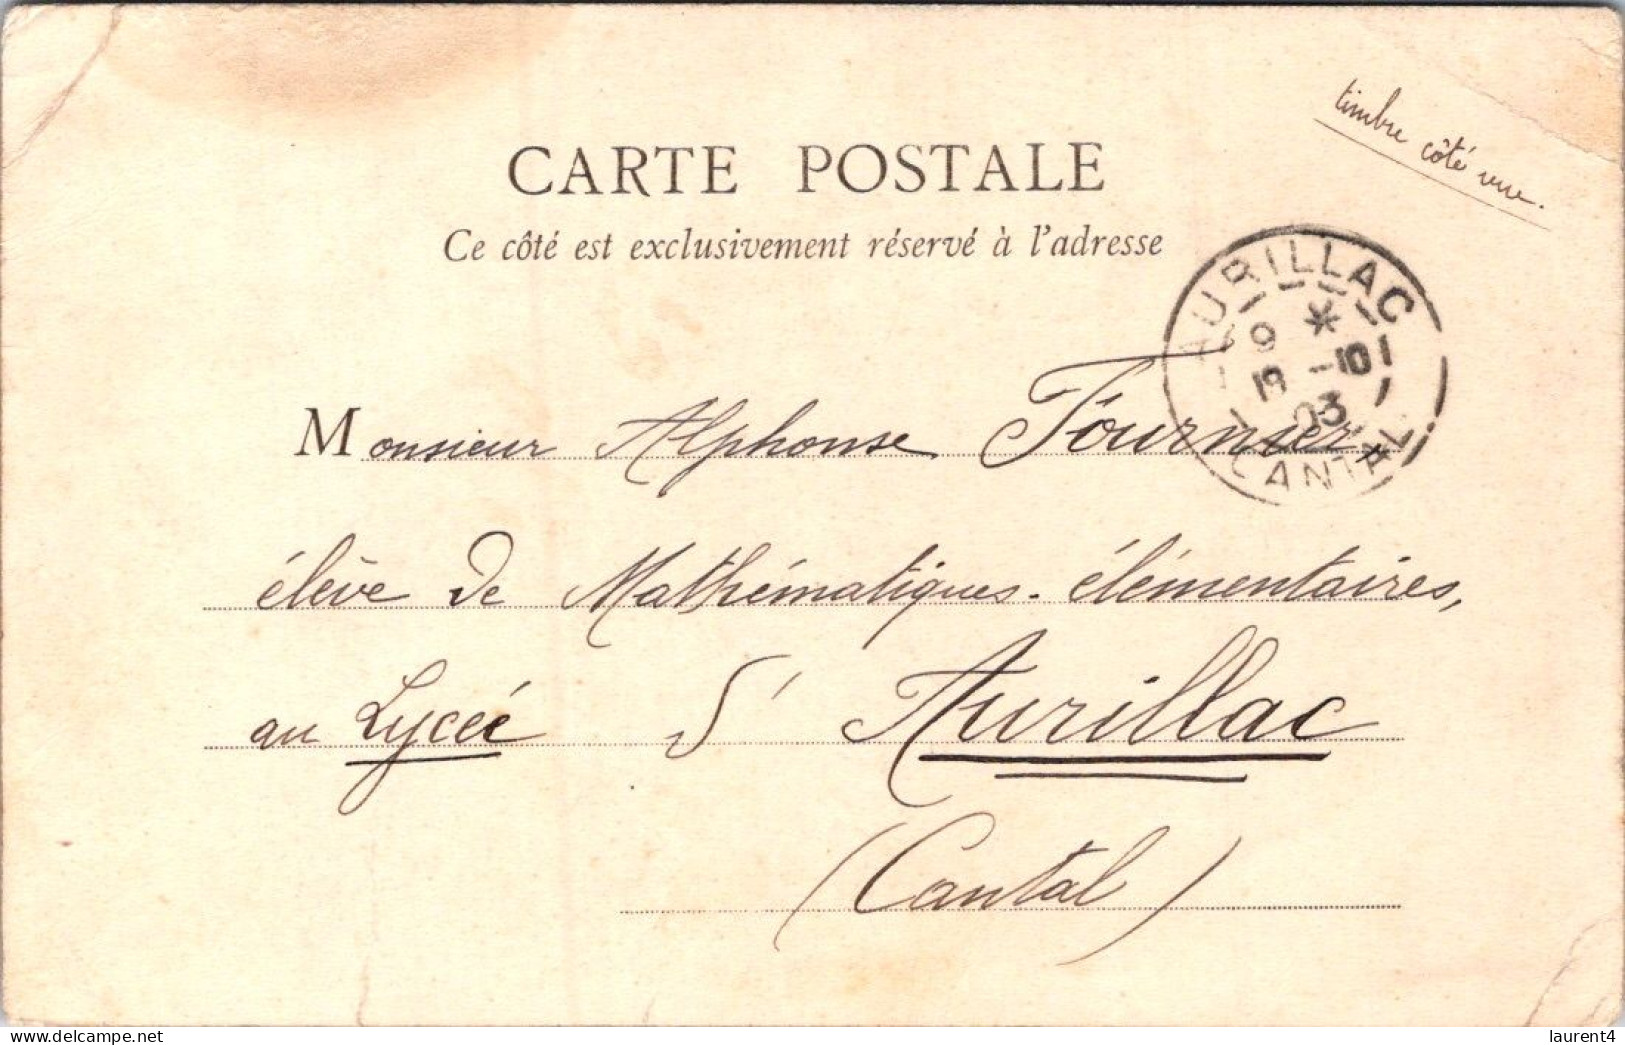 timbre côté vue.
CARTE POSTALE
Ce côté est exclusivement réservé à l'adresse
AURILLAC
9 *
19 -10
03
CANTAL
Monsieur Alphonse Fournier
élève de Mathématiques-élémentaires,
au Lycée d'Aurillac
(Cantal)
www.delcampe.net
laurent4